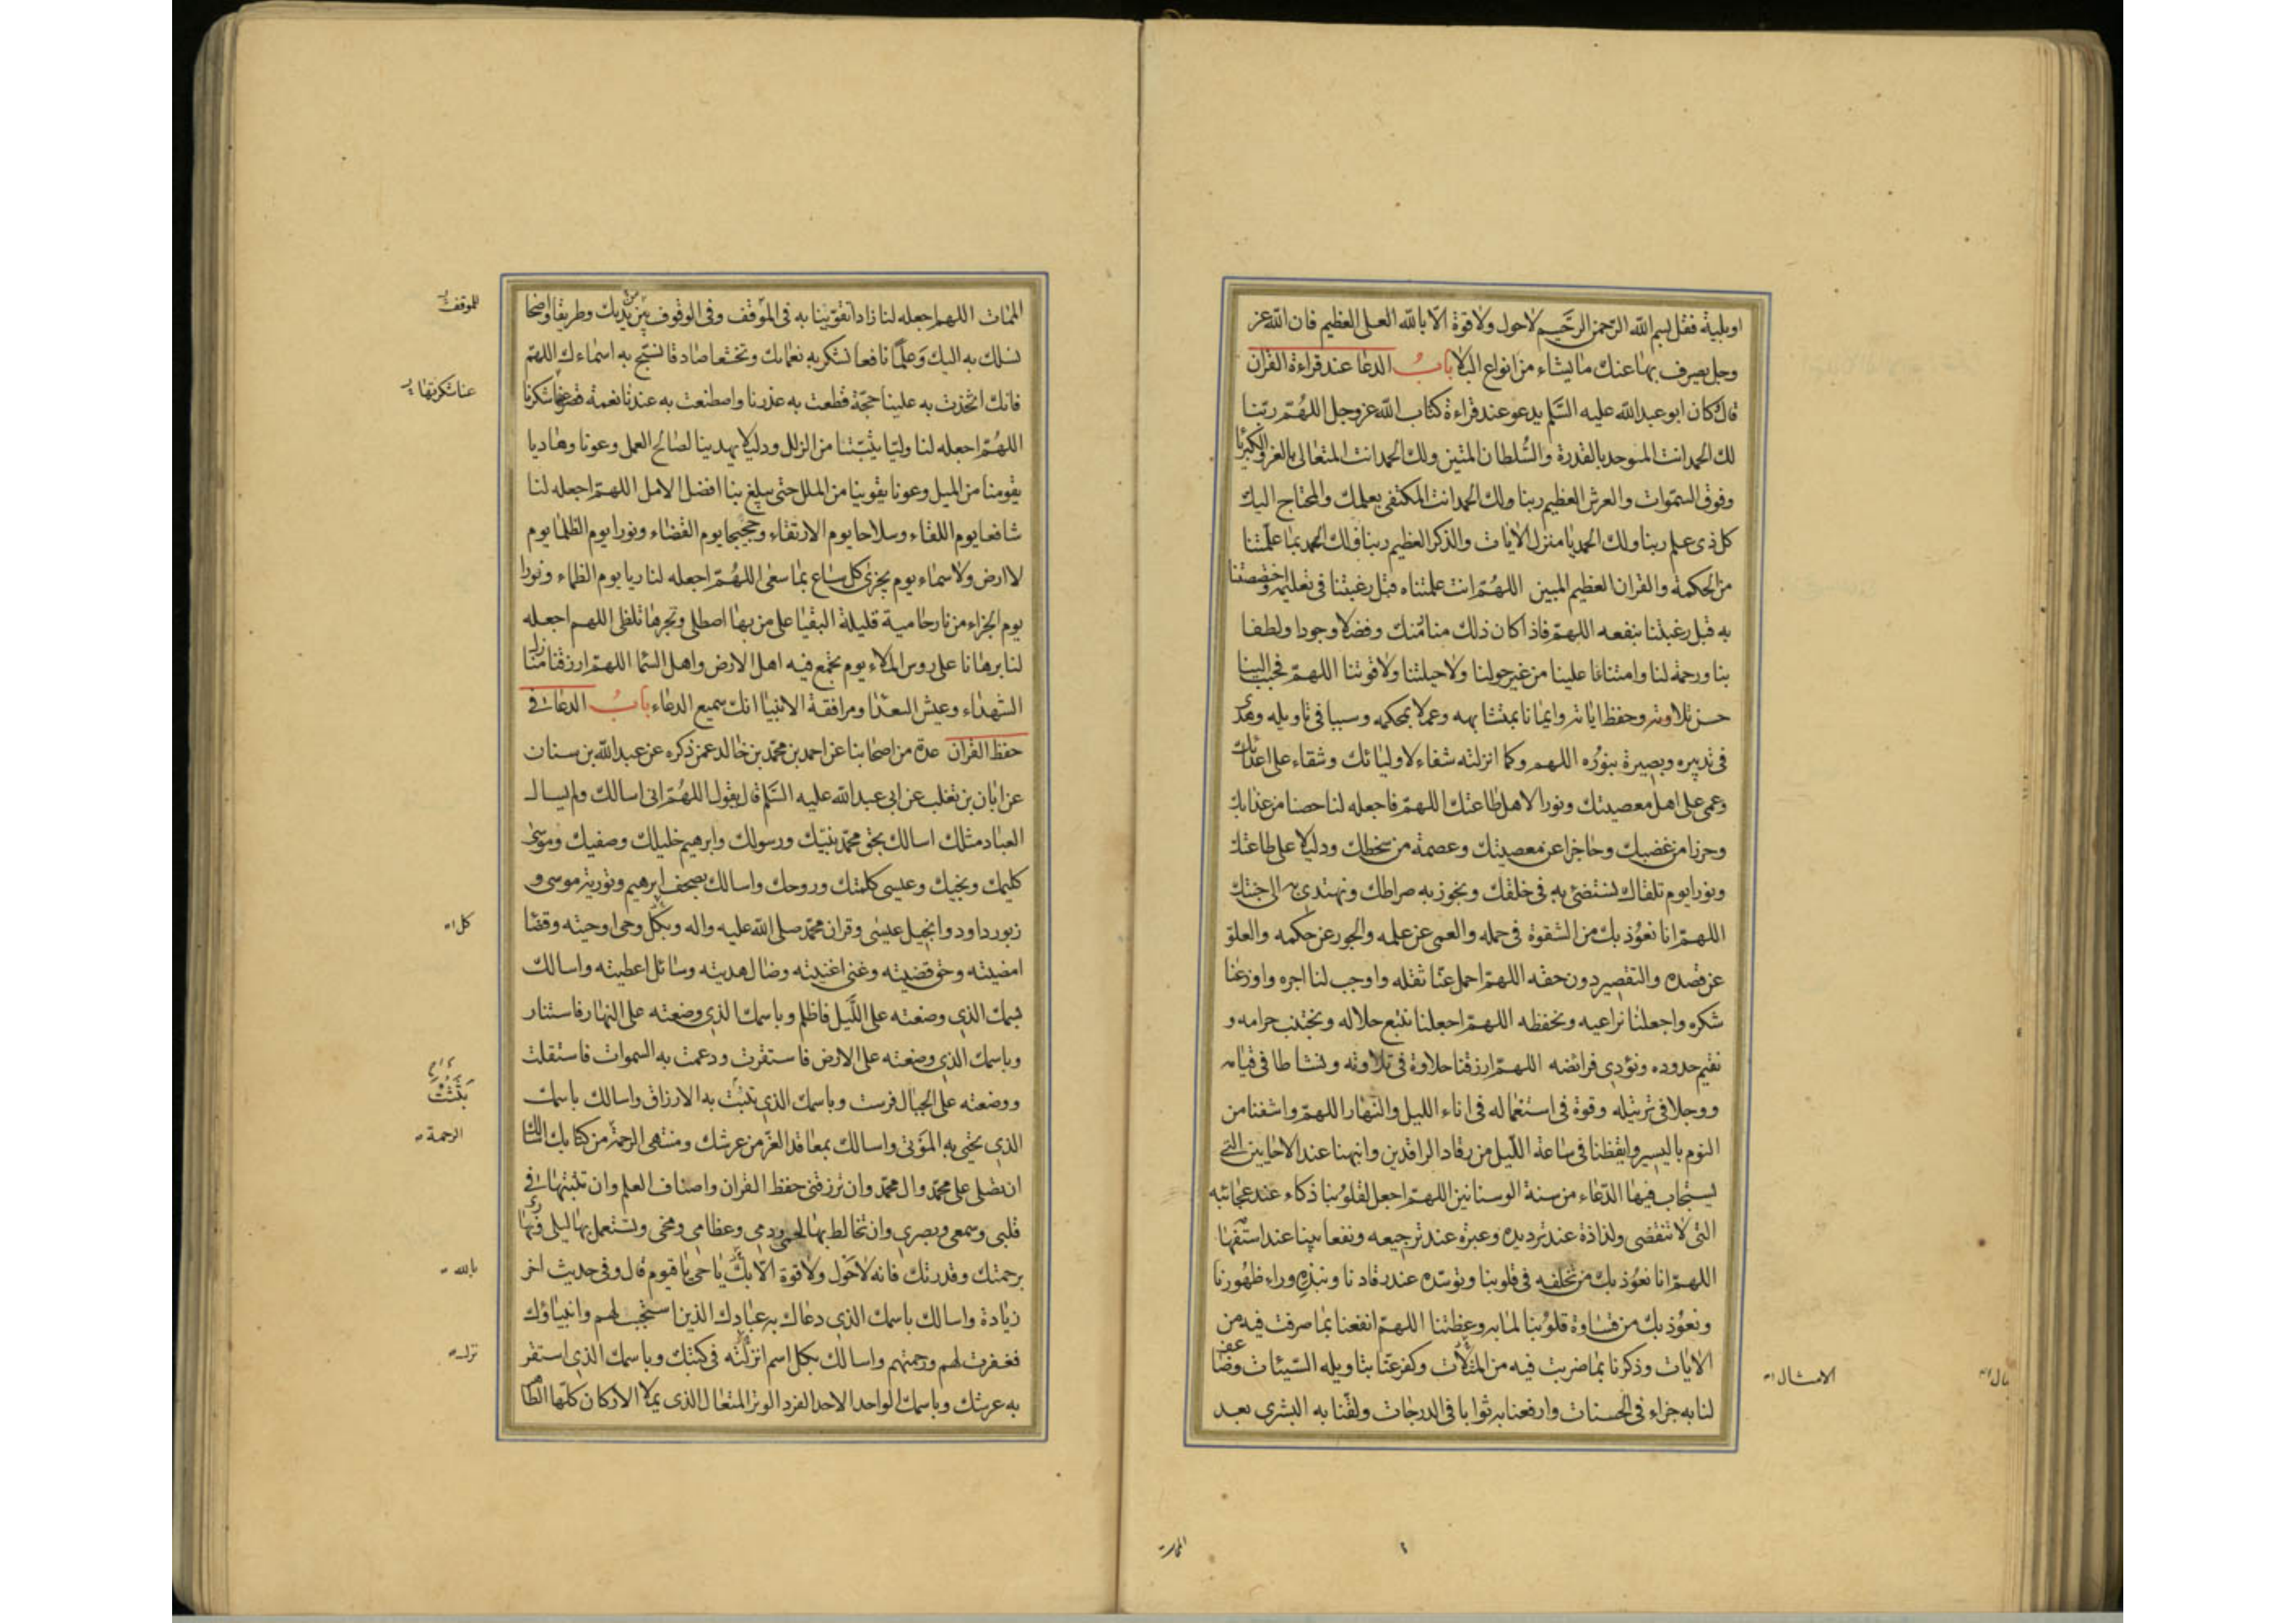 او بلية فقل بسم الله الرحمن الرحيم لا حول ولا قوة الا بالله العلى العظيم فان الله عز
وجل يصرف بها عنك ما يشاء من انواع البلا باب الدعا عند قراءة القران
قال كان ابو عبد الله عليه السلم يدعو عند قراءة كتاب الله عز وجل اللهم ربنا
لك الحمد انت المتوحد بالقدرة والسلطان المتين ولك الحمد انت المتعالى بالعز والكبريا
وفوق السموات والعرش العظيم ربنا ولك الحمد انت المكتفى بعلمك والمحتاج اليك
كل ذى علم ربنا ولك الحمد يا منزل الايات والذكر العظيم ربنا فلك الحمد بما علمتنا
من الحكمة والقران العظيم المبين اللهم انت علمتناه قبل رغبتنا فى تعليمه واختصصتنا
به قبل رغبتنا بنفعه اللهم فاذا كان ذلك منا منك وفضلا وجودا ولطفا
بنا ورحمة لنا وامتنانا علينا من غير حولنا ولا حيلتنا ولا قوتنا اللهم فحبب الينا
حسن تلاوته وحفظ اياته وايمانا بمتشابهه وعملا بمحكمه وسببا فى تاويله وهدى
فى تدبيره وبصيرة بنوره اللهم وكما انزلته شفاء لاوليائك وشقاء على اعدائك
وعمى على اهل معصيتك ونورا لاهل طاعتك اللهم فاجعله لنا حصنا من عذابك
وحرزا من غضبك وحاجزا عن معصيتك وعصمة من سخطك ودليلا على طاعتك
ونورا يوم نلقاك نستضئ به فى خلقك ونجوز به صراطك ونهتدى به الى جنتك
اللهم انا نعوذ بك من الشقوة فى حمله والعمى عن علمه والجور عن حكمه والعلو
عن قصده والتقصير دون حقه اللهم احمل عنا ثقله واوجب لنا اجره واوزعنا
شكره واجعلنا نراعيه ونحفظه اللهم اجعلنا نتبع حلاله ونجتنب حرامه و
نقيم حدوده ونؤدى فرائضه اللهم ارزقنا حلاوة فى تلاوته ونشاطا فى قيامه
ووجلا فى ترتيله وقوة فى استعماله فى اناء الليل والنهار اللهم واشفنا من
النوم باليسير وايقظنا فى ساعة الليل من رقاد الراقدين وانبهنا عند الاحايين التى
يستجاب فيها الدعاء من سنة الوسنانين اللهم اجعل لقلوبنا ذكاء عند عجائبه
التى لا تنقضى ولذاذة عند ترديده وعبرة عند ترجيعه ونفعا بينا عند استفهامه
اللهم انا نعوذ بك من تخلفه فى قلوبنا وتوسده عند رقادنا ونبذه وراء ظهورنا
ونعوذ بك من قساوة قلوبنا لما به وعظتنا اللهم انفعنا بما صرفت فيه من
الايات وذكرنا بما ضربت فيه من المثلات وكفر عنا بتاويله السيئات وضاعف
لنا به جزاء فى الحسنات وارفعنا به ثوابا فى الدرجات ولقنا به البشرى بعد
الامثال
الممات
الممات اللهم اجعله لنا زادا تقوينا به فى الموقف وفى الوقوف بين يديك وطريقا واضحا
نسلك به اليك وعلما نافعا نشكر به نعمائك وتخشعا صادقا نسبح به اسماءك اللهم
فانك اتخذت به علينا حجة قطعت به عذرنا واصطنعت به عندنا نعمة قصر عنها شكرنا
اللهم اجعله لنا وليا يثبتنا من الزلل ودليلا يهدينا لصالح العمل وعونا وهاديا
يقومنا من الميل وعونا يقوينا من الملل حتى يبلغ بنا افضل الامل اللهم اجعله لنا
شافعا يوم اللقاء وسلاحا يوم الارتقاء وحجيجا يوم القضاء ونورا يوم الظلما يوم
لا ارض ولا سماء يوم يجزى كل ساع بما سعى اللهم اجعله لنا ريا يوم الظماء ونورا
يوم الجزاء من نار حامية قليلة البقيا على من بها اصطلى وبحرها تلظى اللهم اجعله
لنا برهانا على روس الملاء يوم يجمع فيه اهل الارض واهل السما اللهم ارزقنا منازل
الشهداء وعيش السعدا ومرافقة الانبيا انك سميع الدعاء باب الدعا فى
حفظ القران عدة من اصحابنا عن احمد بن محمد بن خالد عمن ذكره عن عبد الله بن سنان
عن ابان بن تغلب عن ابى عبد الله عليه السلم قال يقول اللهم انى اسالك ولم يسال
العباد مثلك اسالك بحق محمد نبيك ورسولك وابرهيم خليلك وصفيك وموسى
كليمك ونجيك وعيسى كلمتك وروحك واسالك بصحف ابرهيم وتورية موسى و
زبور داود وانجيل عيسى وقران محمد صلى الله عليه واله وبكل وحى اوحيته وقضا
امضيته وحق قضيته وغنى اغنيته وضال هديته وسائل اعطيته واسالك
بسمك الذى وضعته على الليل فاظلم وباسمك الذى وضعته على النهار فاستنار
وباسمك الذى وضعته على الارض فاستقرت ودعمت به السموات فاستقلت
ووضعته على الجبال فرست وباسمك الذى تثبت به الارزاق واسالك باسمك
الذى يحيى به الموتى واسالك بمعاقد العز من عرشك ومنتهى الرحمة من كتابك اسالك
ان تصلى على محمد وال محمد وان ترزقنى حفظ القران واصناف العلم وان تثبتها فى
قلبى وسمعى وبصرى وان تخالط بها لحمى ودمى وعظامى ومخى وتستعمل بها ليلى ونهارى
برحمتك وقدرتك فانه لا حول ولا قوة الا بك يا حى يا قيوم قال وفى حديث اخر
زيادة واسالك باسمك الذى دعاك به عبادك الذين استجبت لهم وانبياؤك
فغفرت لهم ورحمتهم واسالك بكل اسم انزلته فى كتبك وباسمك الذى استقر
به عرشك وباسمك الواحد الاحد الفرد الوتر المتعال الذى يملا الاركان كلها الطاهر
للموقف
كل
الرحمة
بالله